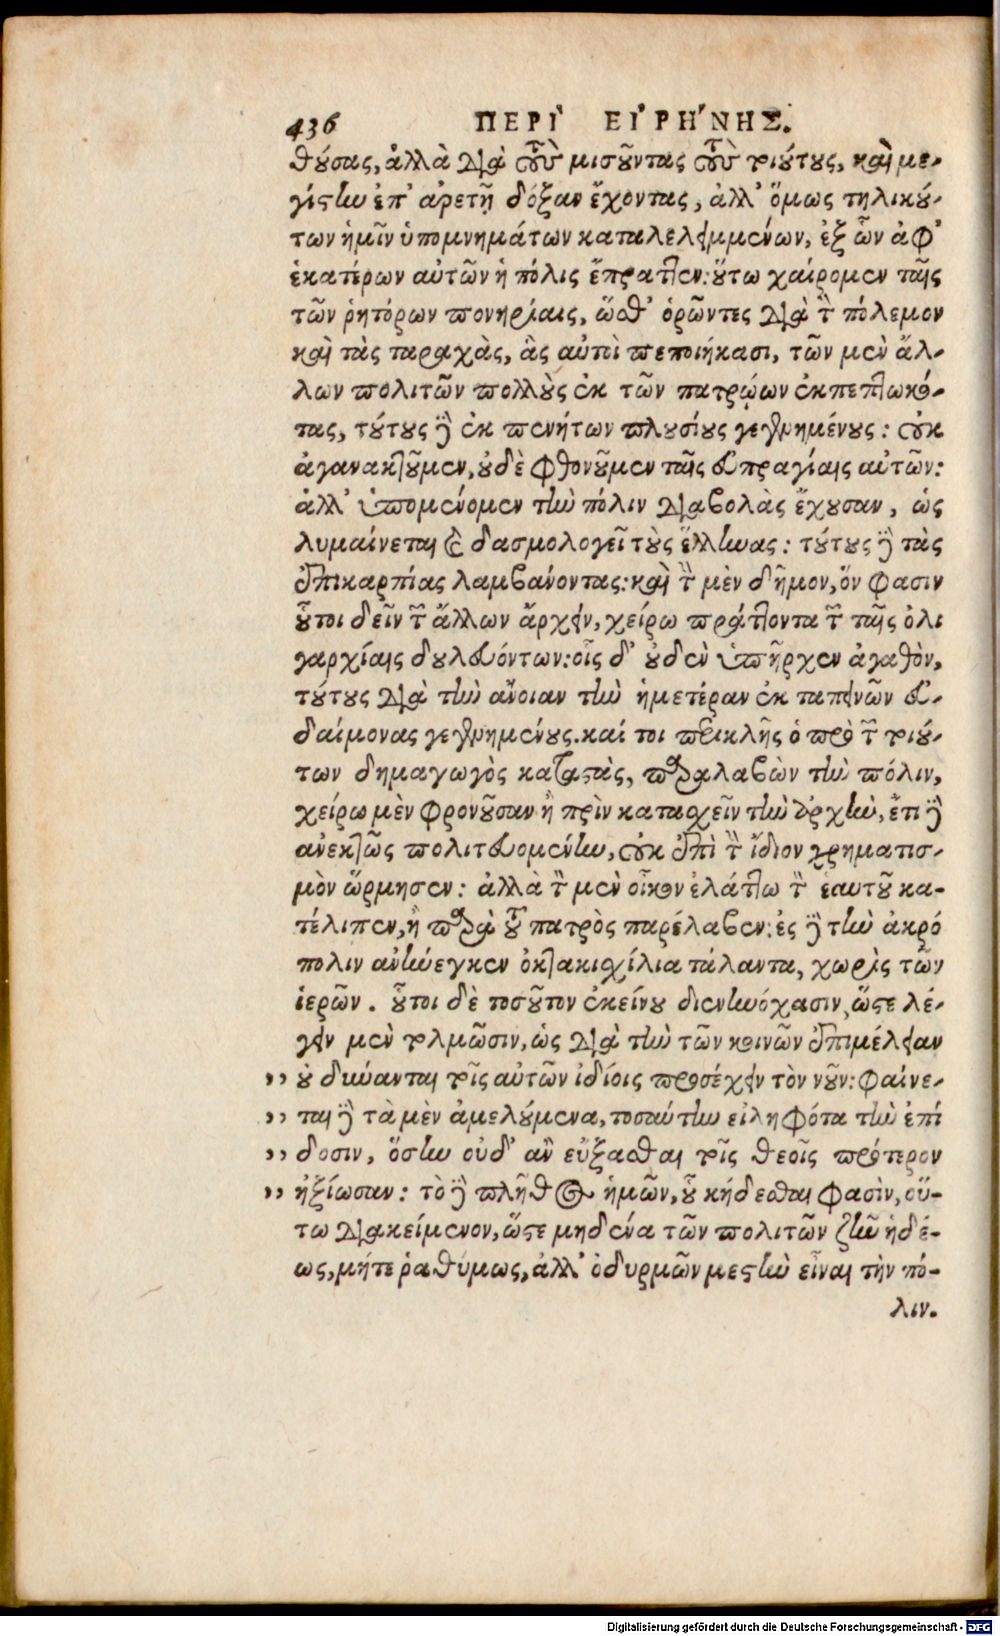 436 ΠΕΡῚ ΕἸΡΉΝΗΣ.
θούσας, ἀλλὰ διὰ τοὺς μισοῦντας τοὺς τοιούτους, καὶ με-
γίστην ἐπ' ἀρετῇ δόξαν ἔχοντας, ἀλλ' ὅμως τηλικού-
των ἡμῖν ὑπομνημάτων καταλελειμμένων, ἐξ ὧν ἀφ'
ἑκατέρων αὐτῶν ἡ πόλις ἔπραττεν: οὕτω χαίρομεν ταῖς
τῶν ῥητόρων πονηρίαις, ὥσθ' ὁρῶντες διὰ τὸν πόλεμον
καὶ τὰς ταραχὰς, ἃς αὐτοὶ πεποιήκασι, τῶν μὲν ἄλ-
λων πολιτῶν πολλοὺς ἐκ τῶν πατρῴων ἐκπεπτωκό-
τας, τούτους δὲ ἐκ πενήτων πλουσίους γεγενημένους: οὐκ
ἀγανακτοῦμεν, οὐδὲ φθονοῦμεν ταῖς εὐπραγίαις αὐτῶν:
ἀλλ' ὑπομένομεν τὴν πόλιν διαβολὰς ἔχουσαν, ὡς
λυμαίνεται καὶ δασμολογεῖ τοὺς ἕλληνας: τούτους δὲ τὰς
ἐπικαρπίας λαμβάνοντας: καὶ τὸν μὲν δῆμον, ὅν φασιν
οὗτοι δεῖν τῶν ἄλλων ἄρχειν, χείρω πράττοντα τῶν ταῖς ὀλι
γαρχίαις δουλευόντων: οἷς δ' οὐδὲν ὑπῆρχεν ἀγαθὸν,
τούτους διὰ τὴν ἄνοιαν τὴν ἡμετέραν ἐκ ταπεινῶν εὐ-
δαίμονας γεγενημένους. καί τοι περικλῆς ὁ πρὸ τῶν τοιού-
των δημαγωγὸς καταστὰς, παραλαβὼν τὴν πόλιν,
χείρω μὲν φρονοῦσαν ἢ πρὶν κατασχεῖν τὴν ἀρχὴν, ἔτι δὲ
ἀνεκτῶς πολιτευομένην, οὐκ ἐπὶ τὸν ἴδιον χρηματισ-
μὸν ὥρμησεν: ἀλλὰ τὸν μὲν οἶκον ἐλάττω τὸν ἑαυτοῦ κα-
τέλιπεν, ἢ παρὰ τοῦ πατρὸς παρέλαβεν: ἐς δὲ τὴν ἀκρό
πολιν ἀνήνεγκεν ὀκτακισχίλια τάλαντα, χωρὶς τῶν
ἱερῶν. οὗτοι δὲ τοσοῦτον ἐκείνου διενηνόχασιν, ὥστε λέ-
γειν μὲν τολμῶσιν, ὡς διὰ τὴν τῶν κοινῶν ἐπιμέλειαν
,, οὐ δύνανται τοῖς αὐτῶν ἰδίοις προσέχειν τὸν νοῦν: φαίνε-
,, ται δὲ τὰ μὲν ἀμελούμενα, τοσαύτην εἰληφότα τὴν ἐπί
,, δοσιν, ὅσην οὐδ' ἂν εὔξασθαι τοῖς θεοῖς πρότερον
,, ἠξίωσαν: τὸ δὲ πλῆθος ἡμῶν, οὗ κήδεσθαι φασὶν, οὕ-
τω διακείμενον, ὥστε μηδένα τῶν πολιτῶν ζῆν ἡδέ-
ως, μήτε ῥαθύμως, ἀλλ' ὀδυρμῶν μεστὴν εἶναι τὴν πό-
λιν.
Digitalisierung gefördert durch die Deutsche Forschungsgemeinschaft - DFG